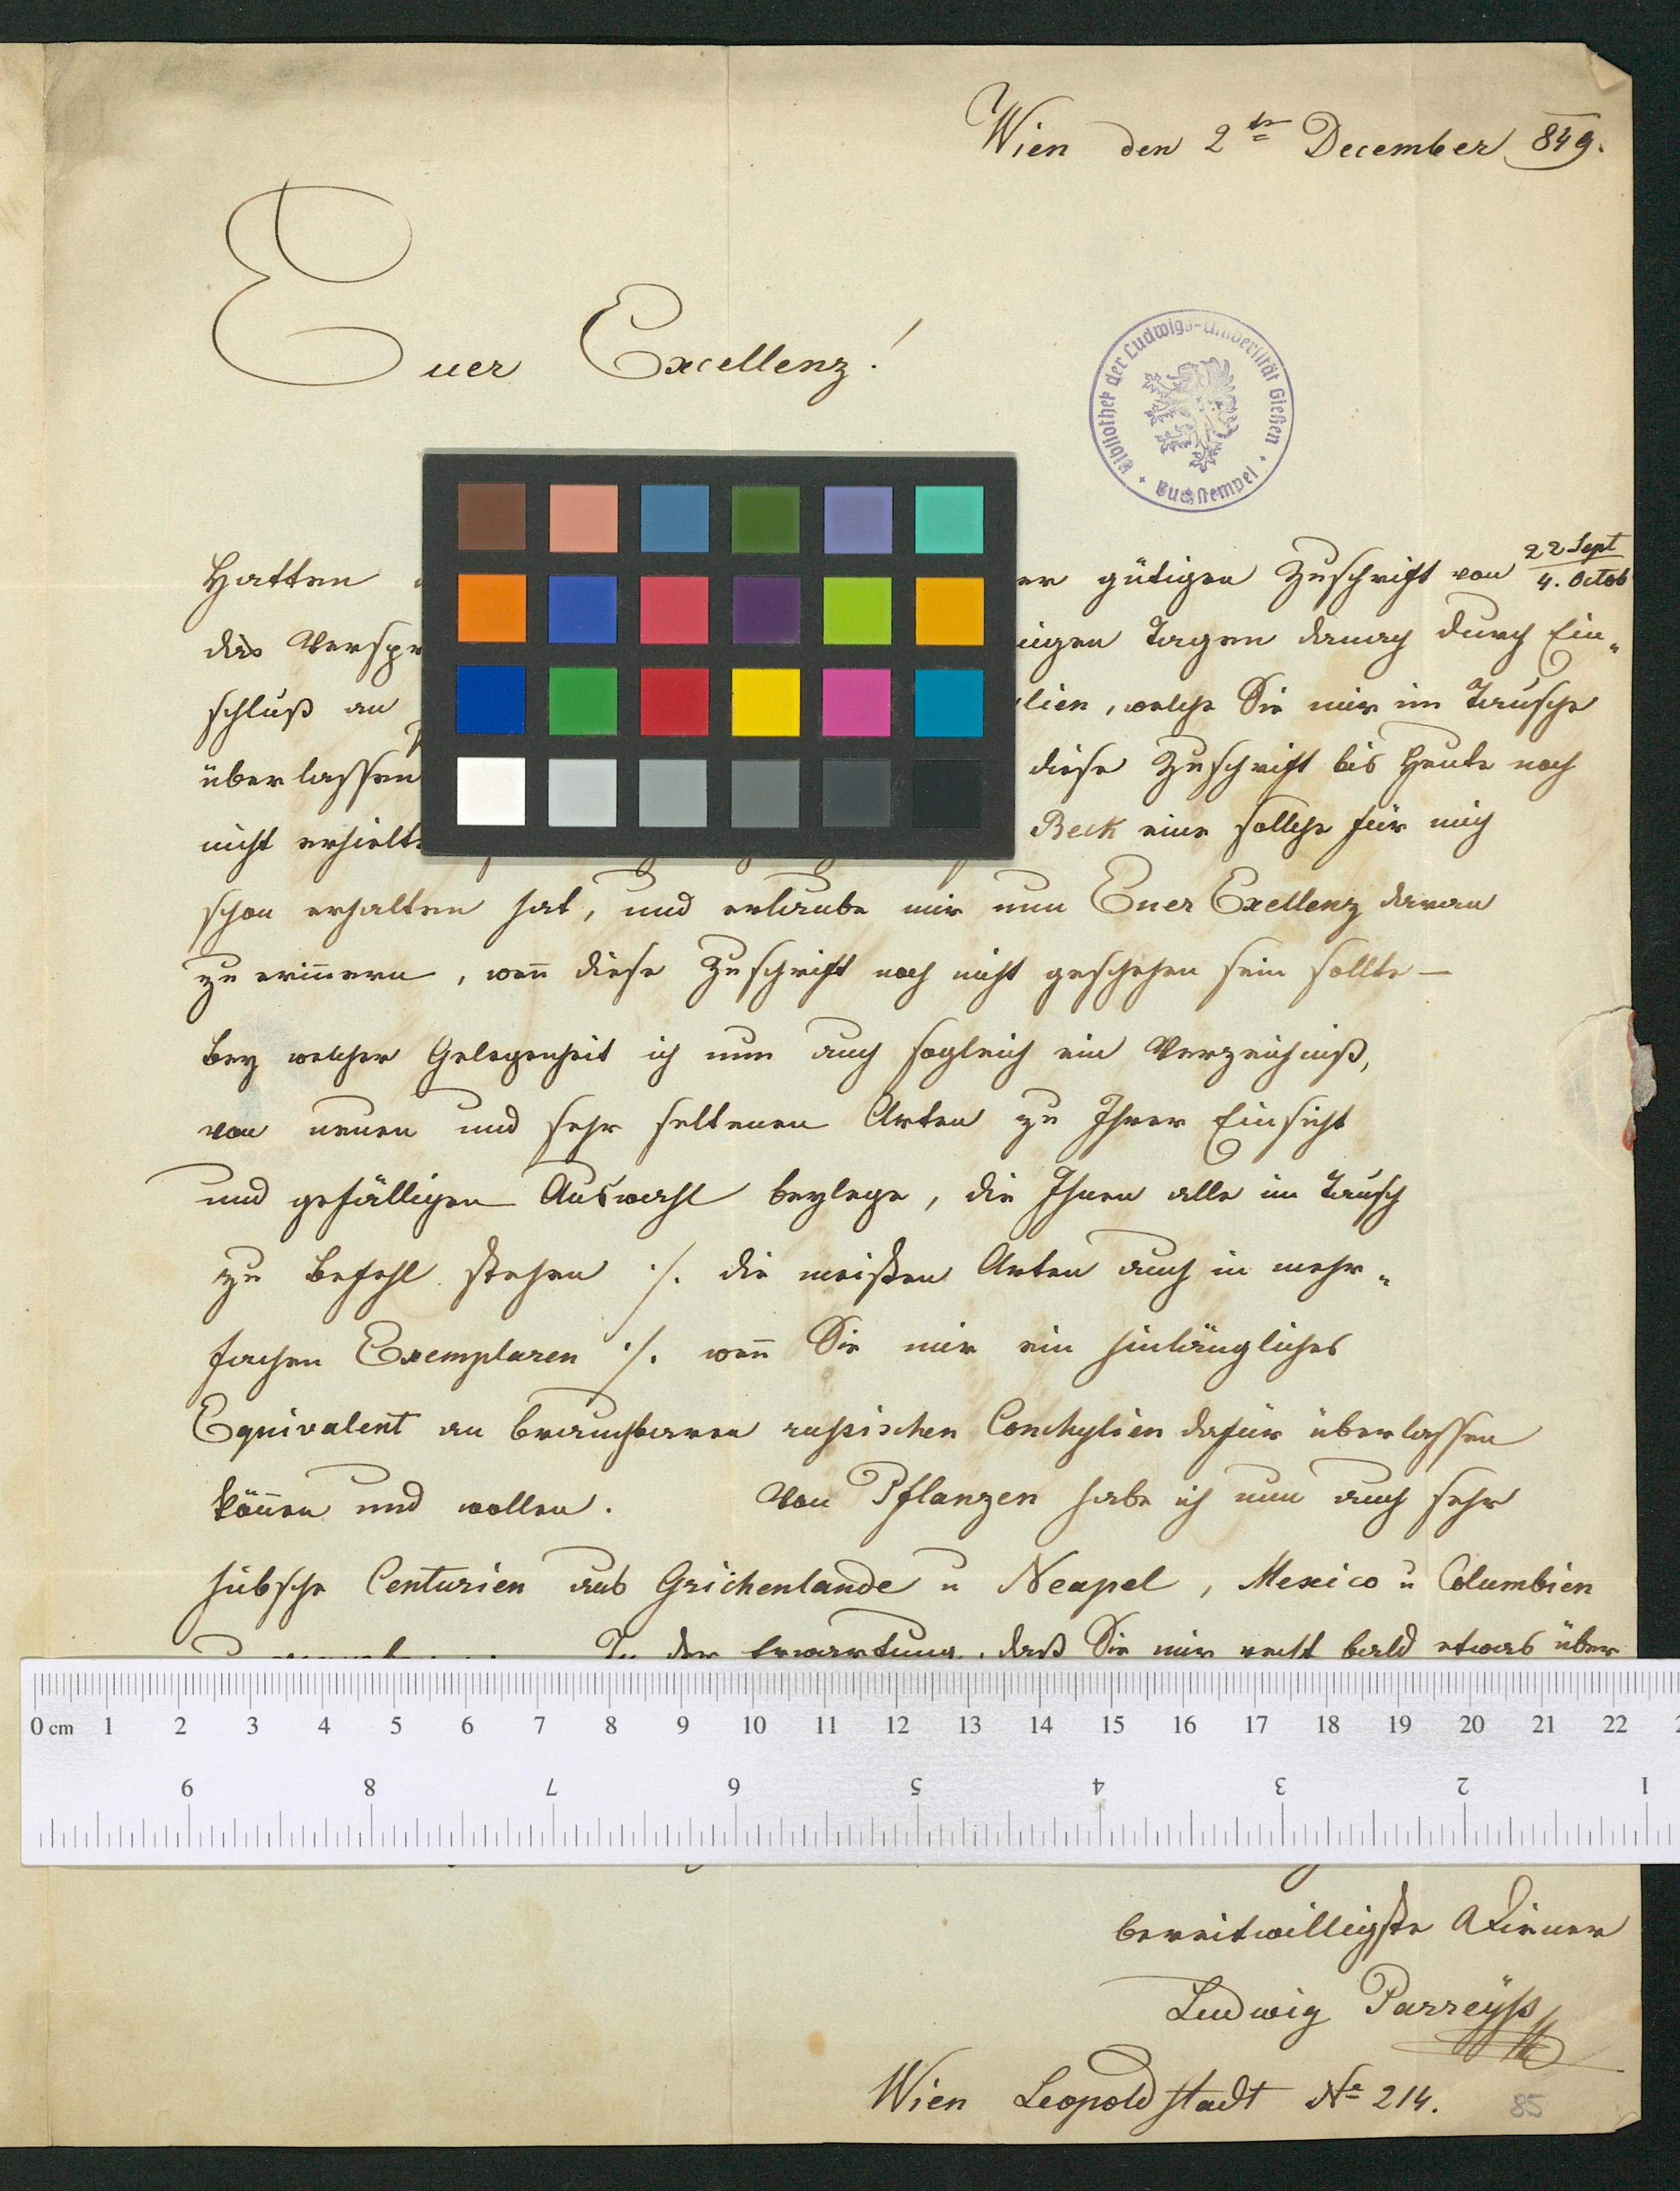 Wien den 2ten December 849.
Euer Excellenz!
Bibliothek der Ludwigs-Universität Gießen · Buchstempel ·
Hatten er gütigen Zuschrift von 22 Sept / 4. Octob
das Verspr nigen Tagen danach durch Ein„
schluß an lien, welche Sie mir im Tausche
überlassen diese Zuschrift bis heute noch
nicht erhielte Beck eine sollche für mich
schon erhalten hat, und erlaube mir nun Euer Exellenz daran
zu erin̄ern, wen̄ diese Zuschrift noch nicht geschehen sein sollte —
bey welcher Gelegenheit ich nun auch sogleich ein Verzeichniß,
von neuen und sehr seltenen Arten zu Ihrer Einsicht
und gefälligen Auswahl beylege, die Ihnen alle im Tausch
zu Befehl stehen ./. die meisten Arten auch in mehr„
fachen Exemplaren ./. wen̄ Sie mir ein hinlängliches
Equivalent an brauchbaren russischen Conchylien dafür überlassen
kön̄en und wollen. Von Pflanzen habe ich nun auch sehr
hübsche Centurien aus Grichenlande u Neapel, Mexico u Columbien
In der Erwartung, daß Sie mir recht bald etwas über
0 cm 1 2 3 4 5 6 7 8 9 10 11 12 13 14 15 16 17 18 19 20 21 22
9 8 7 6 5 4 3 2 1
bereitwilligste Diener
Ludwig Parreyß
Wien Leopoldstadt No 214.
85